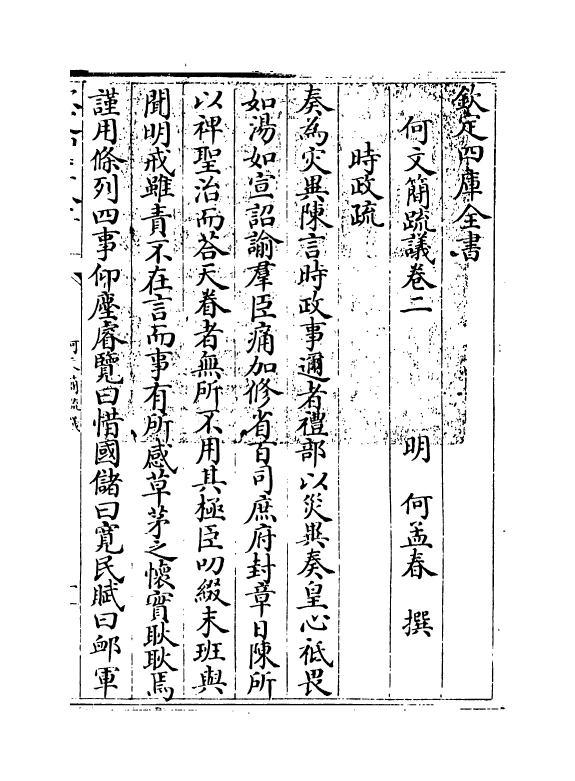 欽定四庫全書
何文簡疏議卷二
明 何孟春 撰
時政疏
奏為災異陳言時政事邇者禮部以災異奏皇心祗畏
如湯如宣詔諭羣臣痛加修省百司庶府封章日陳所
以裨聖治而荅天眷者無所不用其極臣叨綴末班與
聞明戒雖責不在言而事有所感草茅之懷實耿耿焉
謹用條列四事仰塵睿覽曰惜國儲曰寛民賦曰卹軍